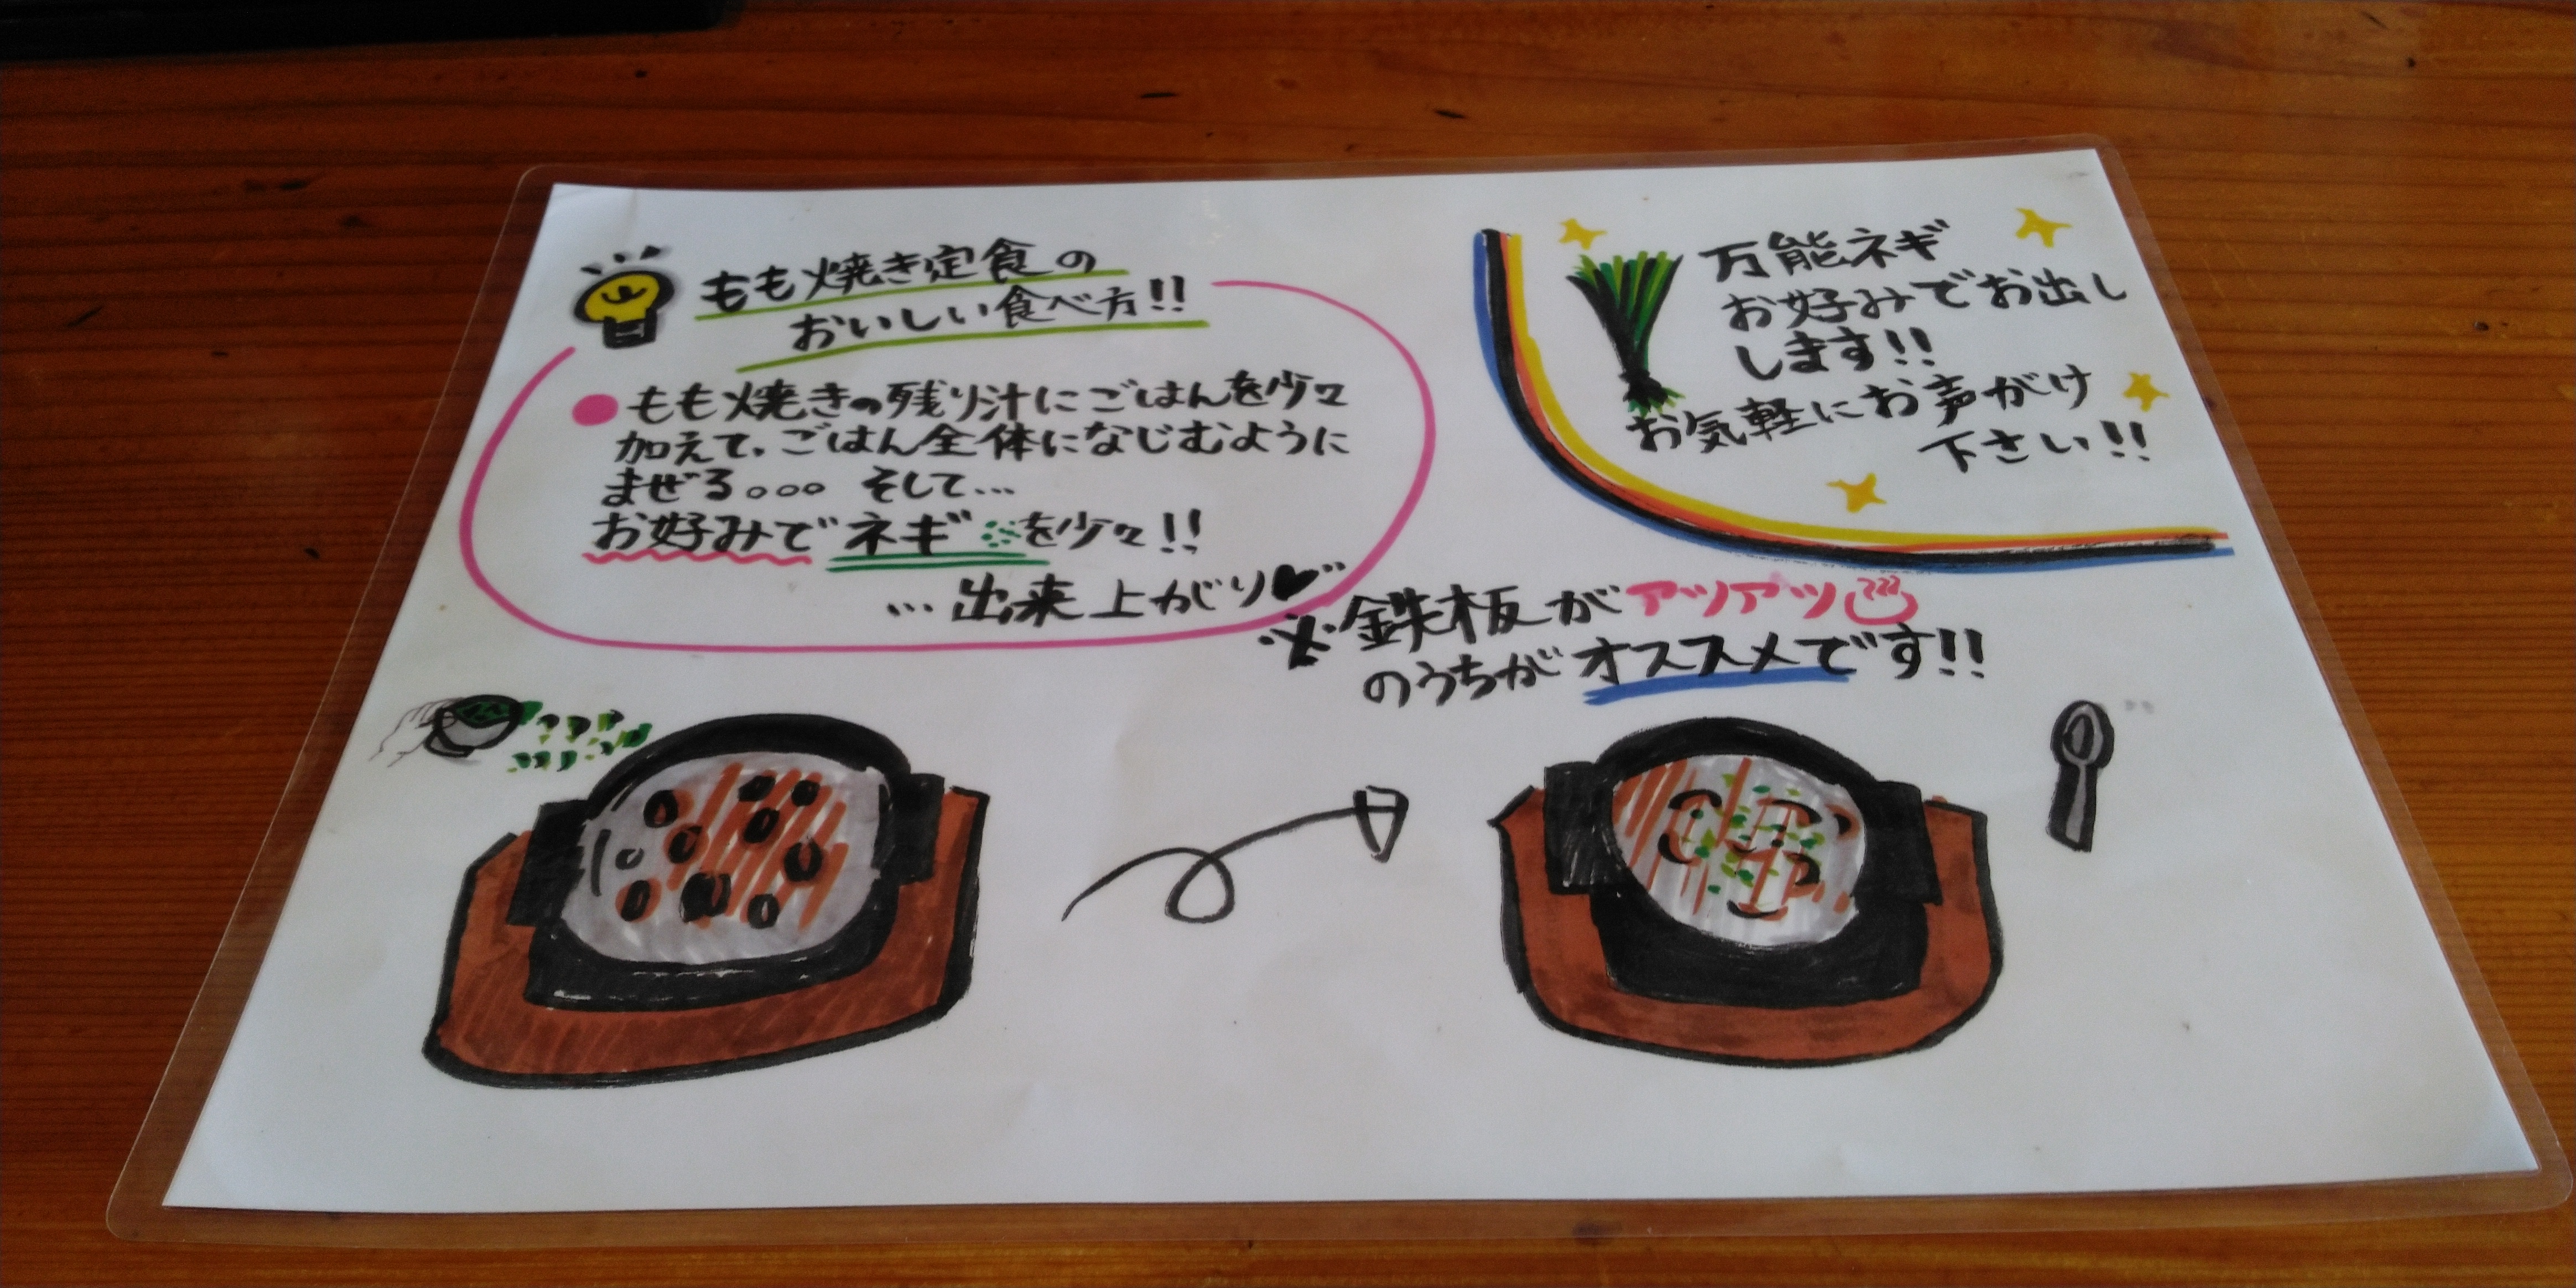 もも焼き定食の
おいしい食べ方!!
●もも焼きの残り汁にごはんを少々
加えて、ごはん全体になじむように
まぜる。。。 そして…
お好みでネギを少々!!
…出来上がり♥
万能ネギ
お好みでお出し
します!!
お気軽にお声がけ
下さい!!
※鉄板がアツアツ♨
のうちがオススメです!!